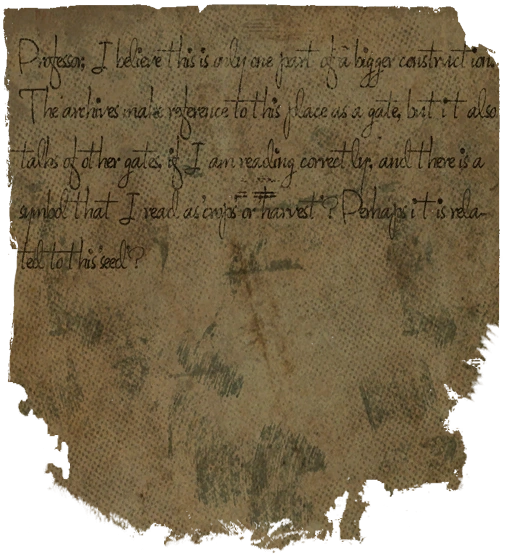 Professor, I believe this is only one part of a bigger construction.
The archives make reference to this place as a gate, but it also
talks of other gates, if I am reading correctly, and there is a
symbol that I read as "crops" or harvest"? Perhaps it is rela-
ted to this "seed"?